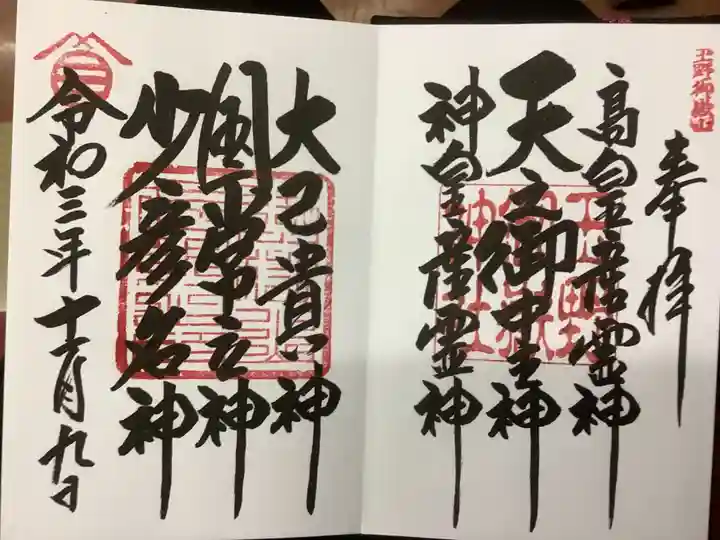 奉拝
高皇産霊神
天之御中主神
神皇産霊神
玉野
御嶽
神社
大己貴神
国常立神
少彦名神
令和三年十一月九日